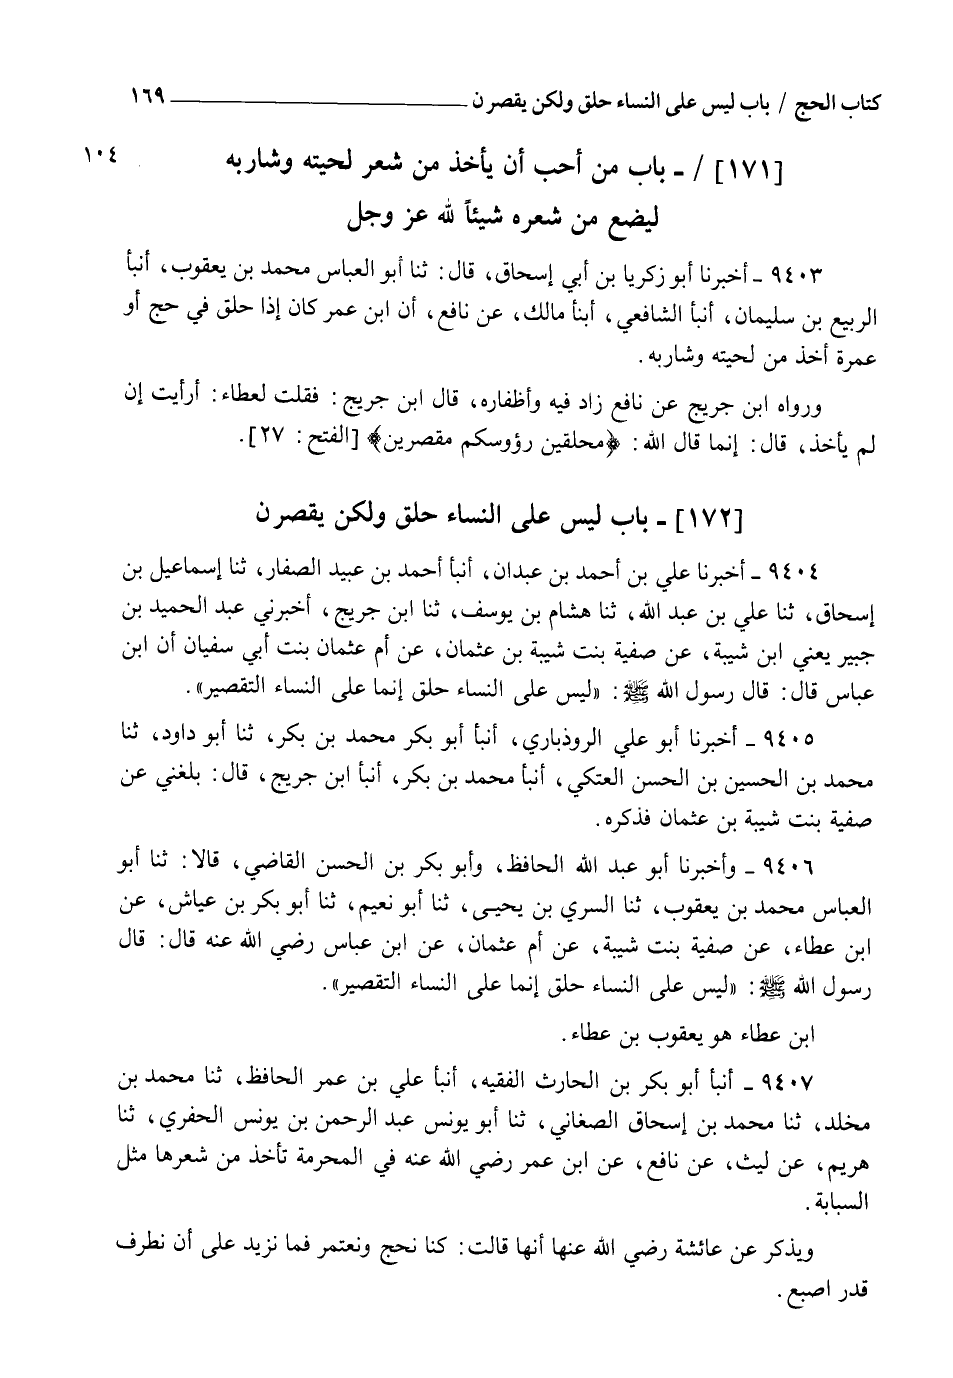 كتاب الحج / باب ليس على النساء حلق ولكن يقصرن ١٦٩
[١٧١] / ـ باب من أحب أن يأخذ من شعر لحيته وشاربه ١٠٤
ليضع من شعره شيئاً لله عز وجل
٩٤٠٣ ـ أخبرنا أبو زكريا بن أبي إسحاق، قال: ثنا أبو العباس محمد بن يعقوب، أنبأ
الربيع بن سليمان، أنبأ الشافعي، أبنأ مالك، عن نافع، أن ابن عمر كان إذا حلق في حج أو
عمرة أخذ من لحيته وشاربه.
ورواه ابن جريج عن نافع زاد فيه وأظفاره، قال ابن جريج: فقلت لعطاء: أرأيت إن
لم يأخذ، قال: إنما قال الله: ﴿محلقين رؤوسكم مقصرين﴾ [الفتح: ٢٧].
[١٧٢] ـ باب ليس على النساء حلق ولكن يقصرن
٩٤٠٤ ـ أخبرنا علي بن أحمد بن عبدان، أنبأ أحمد بن عبيد الصفار، ثنا إسماعيل بن
إسحاق، ثنا علي بن عبد الله، ثنا هشام بن يوسف، ثنا ابن جريج، أخبرني عبد الحميد بن
جبير يعني ابن شيبة، عن صفية بنت شيبة بن عثمان، عن أم عثمان بنت أبي سفيان أن ابن
عباس قال: قال رسول الله ﷺ: «ليس على النساء حلق إنما على النساء التقصير».
٩٤٠٥ ـ أخبرنا أبو علي الروذباري، أنبأ أبو بكر محمد بن بكر، ثنا أبو داود، ثنا
محمد بن الحسين بن الحسن العتكي، أنبأ محمد بن بكر، أنبأ ابن جريج، قال: بلغني عن
صفية بنت شيبة بن عثمان فذكره.
٩٤٠٦ ـ وأخبرنا أبو عبد الله الحافظ، وأبو بكر بن الحسن القاضي، قالا: ثنا أبو
العباس محمد بن يعقوب، ثنا السري بن يحيـى، ثنا أبو نعيم، ثنا أبو بكر بن عياش، عن
ابن عطاء، عن صفية بنت شيبة، عن أم عثمان، عن ابن عباس رضي الله عنه قال: قال
رسول الله ﷺ: «ليس على النساء حلق إنما على النساء التقصير».
ابن عطاء هو يعقوب بن عطاء.
٩٤٠٧ ـ أنبأ أبو بكر بن الحارث الفقيه، أنبأ علي بن عمر الحافظ، ثنا محمد بن
مخلد، ثنا محمد بن إسحاق الصغاني، ثنا أبو يونس عبد الرحمن بن يونس الحفري، ثنا
هريم، عن ليث، عن نافع، عن ابن عمر رضي الله عنه في المحرمة تأخذ من شعرها مثل
السبابة.
ويذكر عن عائشة رضي الله عنها أنها قالت: كنا نحج ونعتمر فما نزيد على أن نطرف
قدر اصبع.